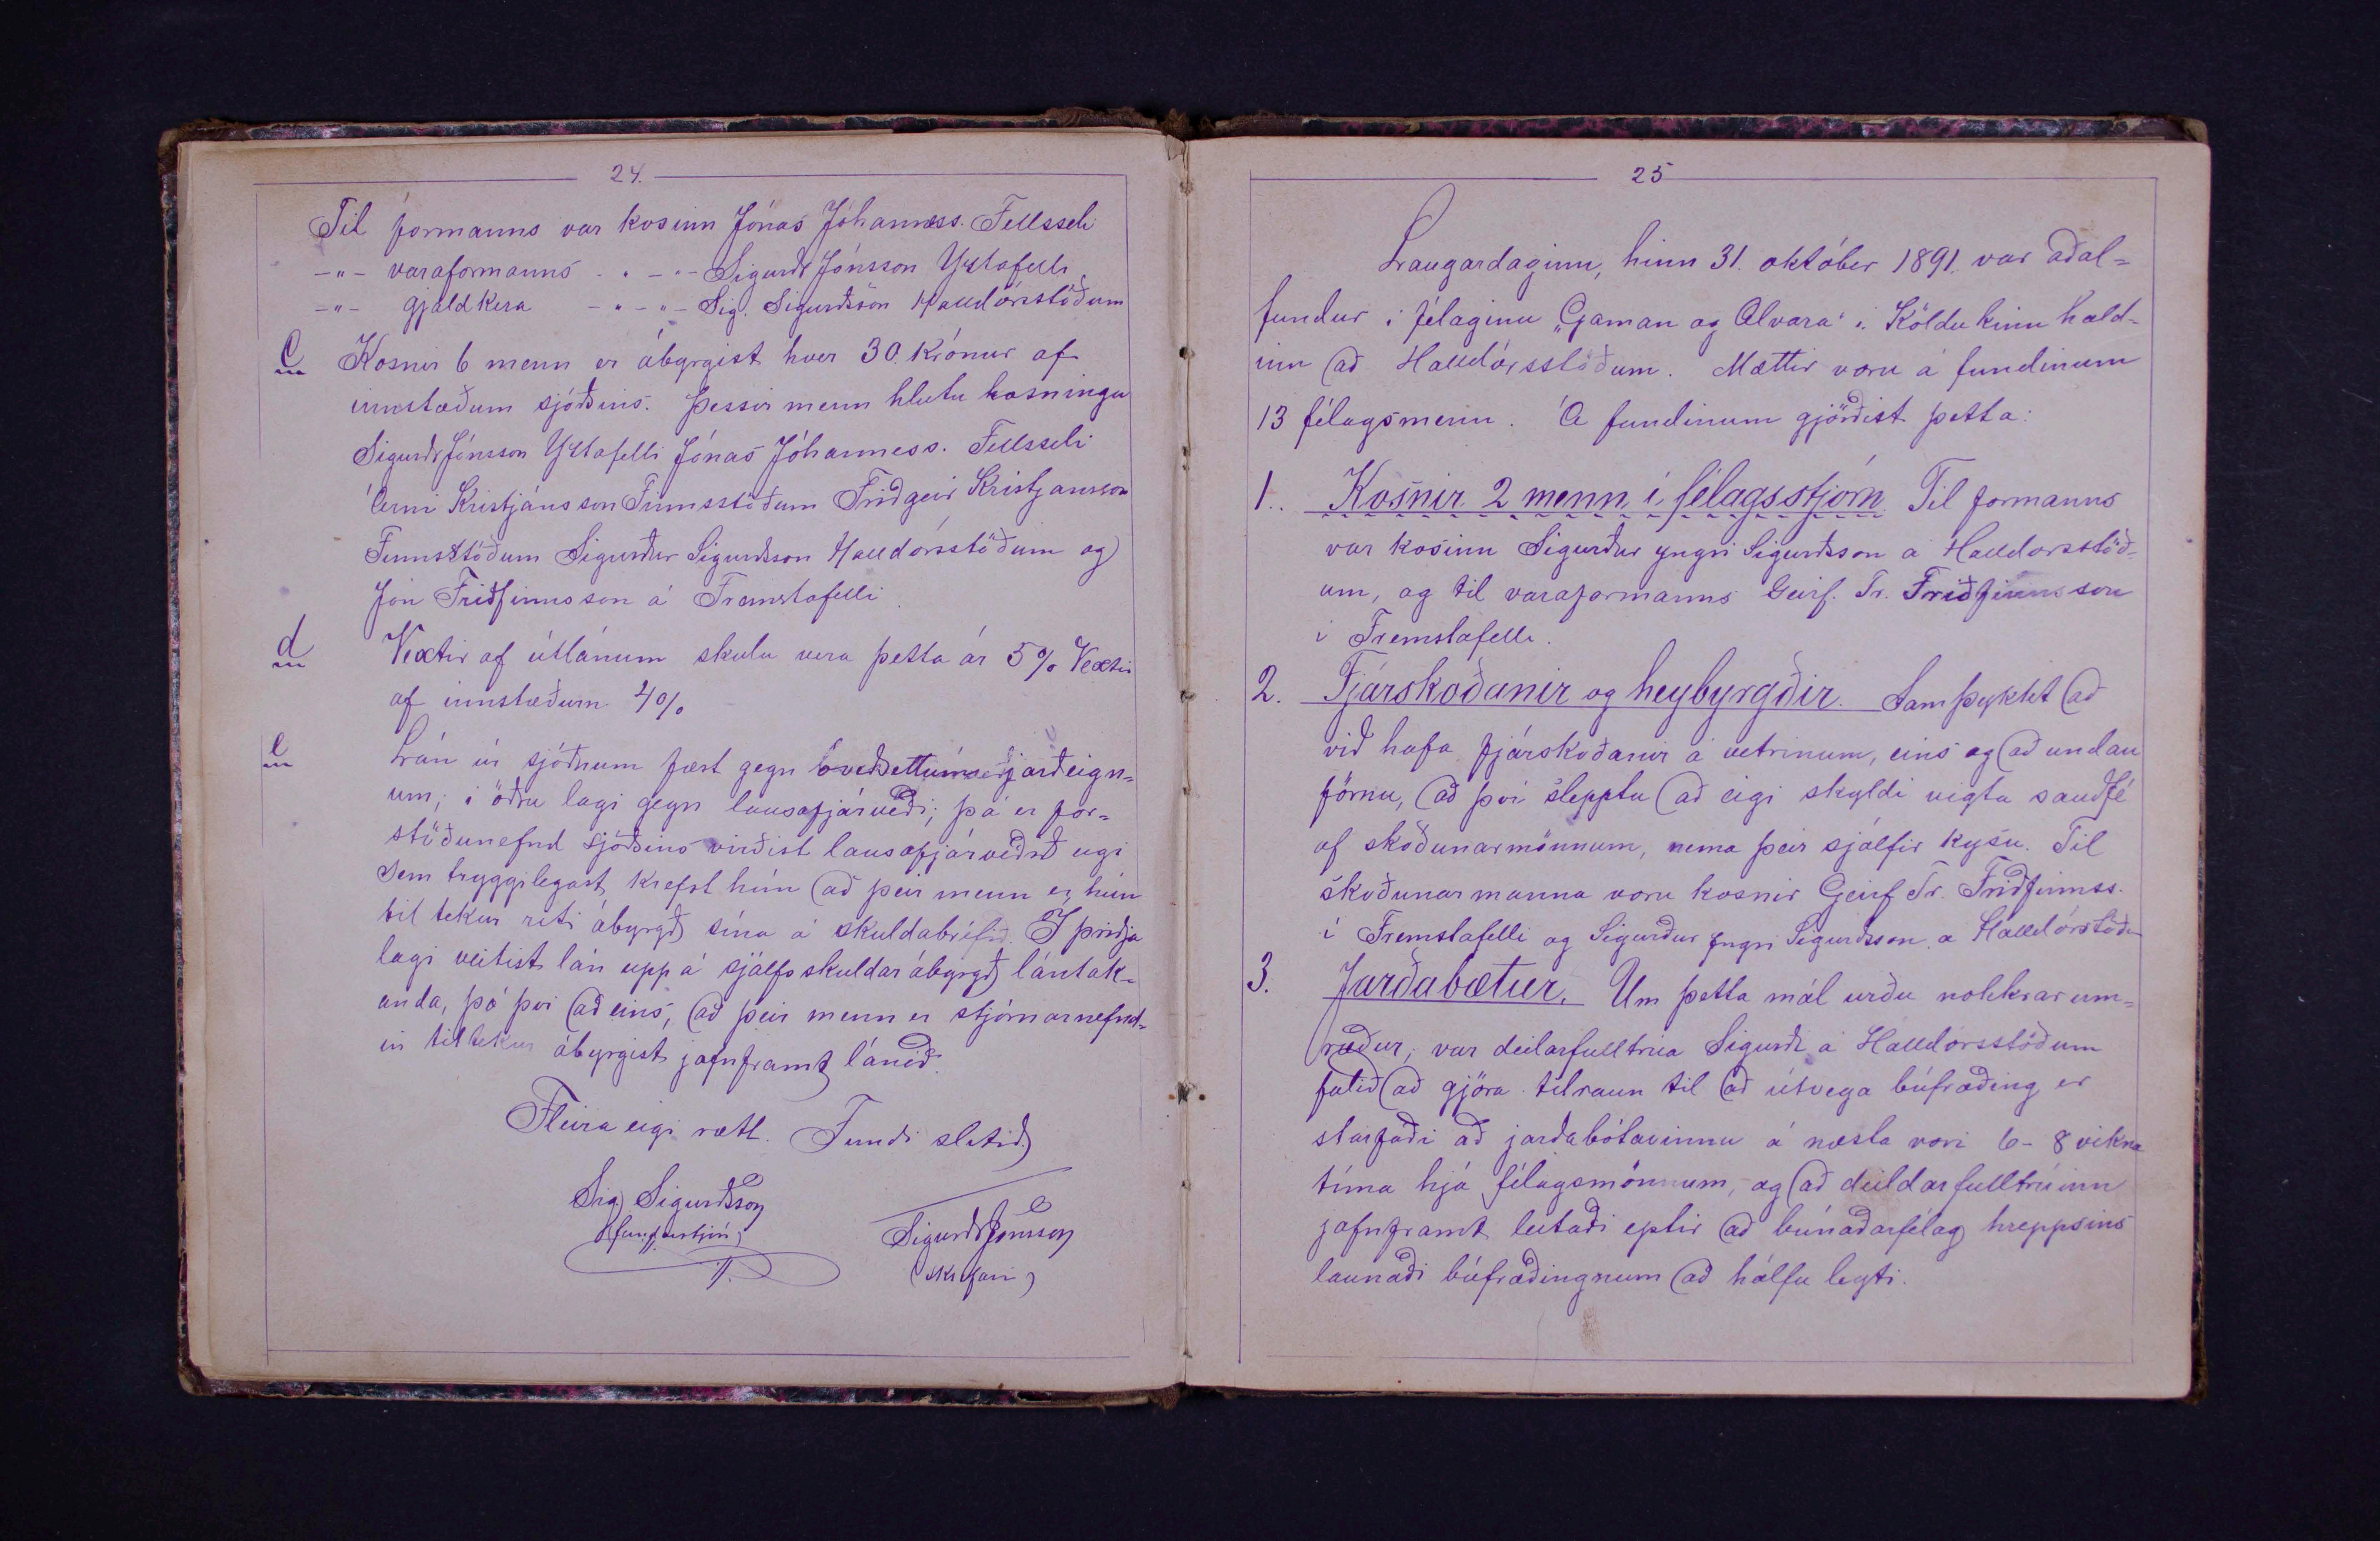 24.
Til formanns var kosinn Jónas Jóhanness. Fellsseli
-"- varaformanns - " - " - Sigurðr Jónsson Yztafelli
-"- gjaldkera - " - " - Sig. Sigurðsson Halldórsstöðum
c Kosnir 6 menn er ábyrgist hver 30. Krónur af
innstæðum sjóðsins. Þessir menn hlutu kosningu
Sigurðr Jónsson Yztafelli Jónas Jóhanness. Fellsseli
Árni Kristjánsson Finnsstöðum Friðgeir Kristjansson
Finnsstöðum Sigurður Sigurðsson Halldórsstöðum og
Jón Friðfinnsson á Fremstafelli.
d Vextir af útlánum skulu vera þetta ár 5% Vextir
af innstæðum 4%
e Lán úr sjóðnum fæst gegn jarðeign=
um; í öðru lagi gegn lausafjárveði; þá er for=
stöðunefnd sjóðsins virðist lausafjárveðið eigi
sem tryggilegast, krefst hún að þeir menn er hún
til tekur riti ábyrgð sína á skuldabréfið. I þriðja
lagi veitist lán upp á sjálfsskuldarábyrgð lántak=
anda, þó því að eins, að þeir menn er stjórnarnefnd=
in til tekur ábyrgist jafnframt lánið.
Fleira eigi rætt. Fundi slitið
Sig Sigurðsson
(fundarstjóri)
Sigurðr Jónsson
(skrifari)
25
Laugardaginn, hinn 31. október 1891. var aðal=
fundur í félaginu „Gaman og Alvara" í Köldukinn hald=
inn að Halldórsstöðum. Mættir voru á fundinum
13 félagsmenn. Á fundinum gjörðist þetta:
1. Kosnir 2 menn í félagsstjórn. Til formanns
var kosinn Sigurður yngri Sigurðsson a Halldorsstöð=
um, og til varaformanns Geirf. Tr. Friðfinnsson
í Fremstafelli.
2. Fjárskoðanir og heybyrgðir. Samþykkt að
við hafa fjárskoðanir á vetrinum, eins og að undan
förnu, að því slepptu að eigi skyldi vigta sauðfé
af skoðunarmönnum, nema þeir sjálfir kysu. Til
skoðunarmanna voru kosnir Geirf Tr. Friðfinnss.
í Fremstafelli og Sigurður yngri Sigurðsson a Halldórstöðu
3. Jarðabætur. Um þetta mál urðu nokkrar um=
ræður; var deilarfulltrúa Sigurði á Halldorsstöðum
falið að gjöra tilraun til að útvega búfræðing er
starfaði að jarðabótavinnu á næsta vori 6-8 vikna
tíma hjá félagsmönnum, og að deildarfulltrúinn
jafnframt leitaði eptir að búnaðarfélag hreppsins
launaði búfræðingnum að hálfu leyti.